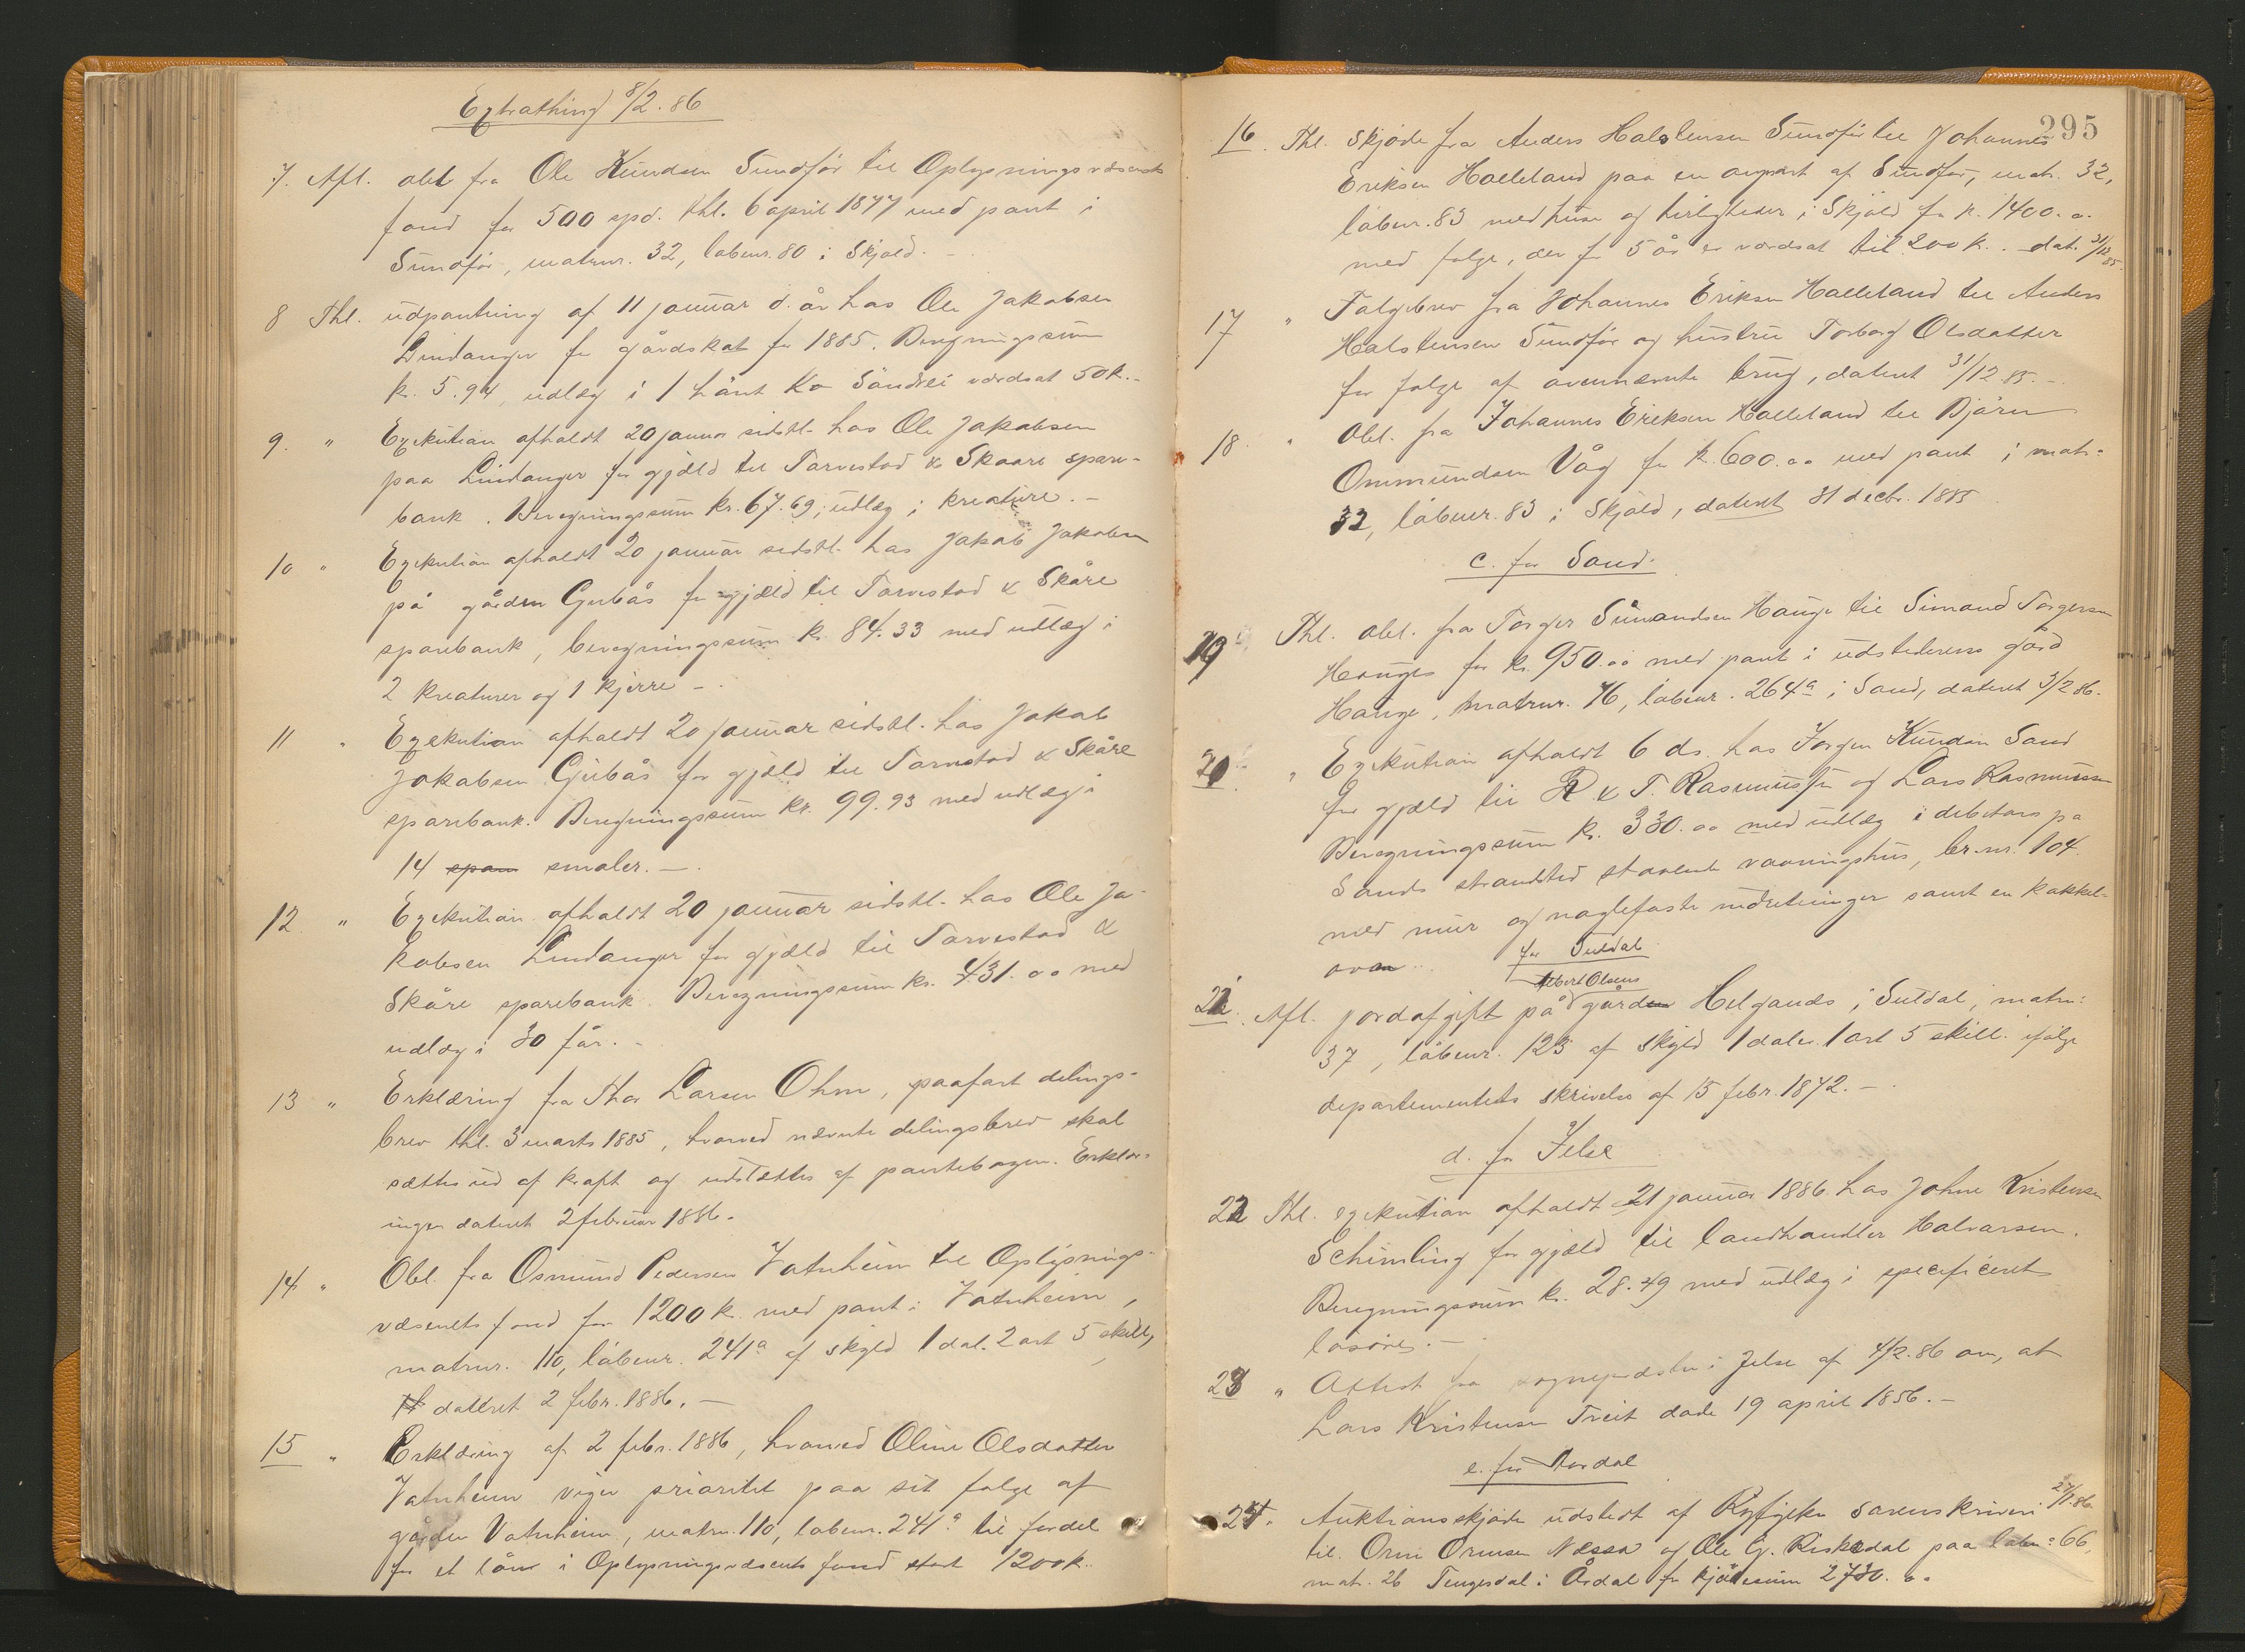 Extrathing 8/2. 86
7. Afl. obl. fra Ole Knudsen Sundför til Oplysningsvæsenets
fond for 500 spd. thl. 6 april 1877 med pant i
Sundför, matrnr. 32, löbenr. 80 i Skjold. -
8 Thl. udpantning af 11 januar d. år hos Ole Jakobsen
Lindanger for gårdskat for 1885. Beregningssum
kr. 5.94, udlæg i 1 hånt Ko Sändrei værdsat 50 k. -
9. " Exekution afholdt 20 januar sidstl. hos Ole Jakobsen
paa Lindanger for gjæld til Torvestad & Skaare spare-
bank. Beregningssum kr. 67.69, udlæg i kreature. -
10 " Exekution afholdt 20 januar sidstl. hos Jakob Jakobsen
på gården Gubås for gjæld til Torvestad & Skåre
sparebank, beregningssum kr. 84.33 med udlæg i
2 kreaturer og 1 kjerre -.
11 " Exekution afholdt 20 januar sidstl. hos Jakob
Jokobsen Gubås for gjæld til Torvestad & Skåre
sparebank. Beregningssum kr. 99.93 med udlæg i
14 spam smaler. -
12. " Exekution afholdt 20 januar sidstl. hos Ole Ja-
kobsen Lindanger for gjæld til Torvestad &
Skåre sparebank. Beregningssum kr. 431.00 med
udlæg i 30 får. -
13 " Erklæring fra Thor Larsen Ohm, paafört delings-
brev thl. 3 marts 1885, hvorved nævnte delingsbrev skal
sættes ud af kraft og udslættes af pantebogen. Erklær-
ingen dateret 2 februar 1886.
14 " Obl. fra Osmund Pedersen Vatnheim til Oplysnings-
væsenets fond for 1200 k. med pant i Vatnheim,
matrnr. 110, löbenr. 241a af skyld 1 dal. 2 ort 5 skill,
dateret 2 febr. 1886. -
15 " Erklæring af 2 febr. 1886, hvorved Oline Olsdatter
Vatnheim viger prioritet paa sit folge af
gården Vatnheim, matrn. 110, löbenr. 241a til fordel
for et lån i Oplysningsvæsents fond stort 1200 k.
295
16. Thl. Skjöde fra Anders Halstensen Sundför til Johannes
Eriksen Hoelleland paa en anpart af Sundför, matr. 32,
löbenr. 83 med huse og herligheder i Skjold for k. 1400.00
med folge, der for 5 år er værdsat til 200 k. dat. 31/12 85.
17 " Folgebrev fra Johannes Eriksen Hoelleland til Anders
Halstensen Sundför og hustru Torborg Olsdatter
for folge af ovennævnte brug, dateret 31/12 85. -
18. " Obl. fra Johannes Eriksen Hoelleland til Bjären
Ommundsen Våg for k. 600.00 med pant i matr.
32, löbenr. 83 i Skjold, dateret 31 decbr. 1885
c. for Sand.
19 Thl. obl. fra Torger Simandsen Hauge til Simand Torgersen
Hauges for kr. 950.00 med pant i udstederens gård
Hauge, matrnr. 76, löbenr. 264a i Sand, dateret 3/2 86.
20 " Exekution afholdt 6 ds. hos Jorgen Knudsen Sand
for gjæld til R & T. Rasmussen og Lars Rasmussen
Beregningssum kr. 330.00 med udlæg i debitors på
Sands strandsted staaende vaaningshus, br. nr. 104.
med mur og naglefaste indretninger samt en kakkel-
ovn.
for Suldal
Albert Olsens
21. Afl. jordafgift på gården Helgands i Suldal, matrn.
37, löbenr. 123 af skyld 1 daler 1 ort 5 skill. ifölge
departementets skrivelse af 15 febr. 1872. -
d. for Jelse
22 Thl. exekution afholdt 21 januar 1886 hos Johne Kristensen
Schimling for gjæld til landhandler Halvarsen.
Beregningssum kr. 28.49 med udlæg i specificeret
lösöre. -
23 " Attest fra sogneprästen i Jelse af 4/2. 86 om, at
Lars Kristensen Treit döde 19 april 1856. -
e. for Aardal
24. Auktionsskjöde udstedt af Ryfylke sorenskriveri 27/1. 86
til Orm Ormsen Nessa og Ole G. Riskedal paa löbenr. 66,
matr. 26 Tengesdal i Årdal for kjöbesum 2730.00